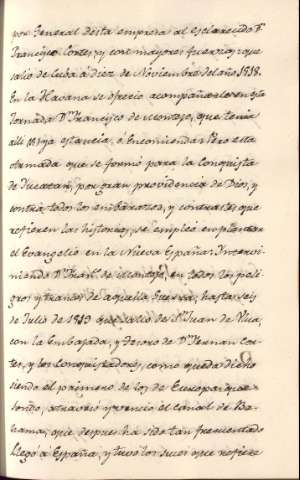 por General desta empresa al esclarecido Dn
Francisco Cortes, y con mayores fuerzas que
salio de Cuba á diez de Noviembre del año 1518.
En la Havana se ofrecio acompañarle en esta
Jornada Dn Francisco de Montejo, que tenia
alli su estancia, ó Encomienda: Pero esta
Armada que se formó para la Conquista
de Yucatan, por gran providencia de Dios, y
contra todos los embarazos, y contrastes que
refieren las historias, se empleó en plantar
el Evangelio en la Nueva España: Intervi-
niendo Dn Franco de Montejo, en todos los peli-
gros y trances de aquella Guerra, hasta seis
de Julio de 1519 que salio de Sn Juan de Ulua,
con la Embajada, y tesoro de Dn Hernan Cor-
tes, y los Conquistadores, como queda dicho
siendo el primero de los de Europa que
atravesó y venció el canal de Ba-
hama, que despues ha sido tan frecuentado
Llegó á España, y tuvo los suces que refiere